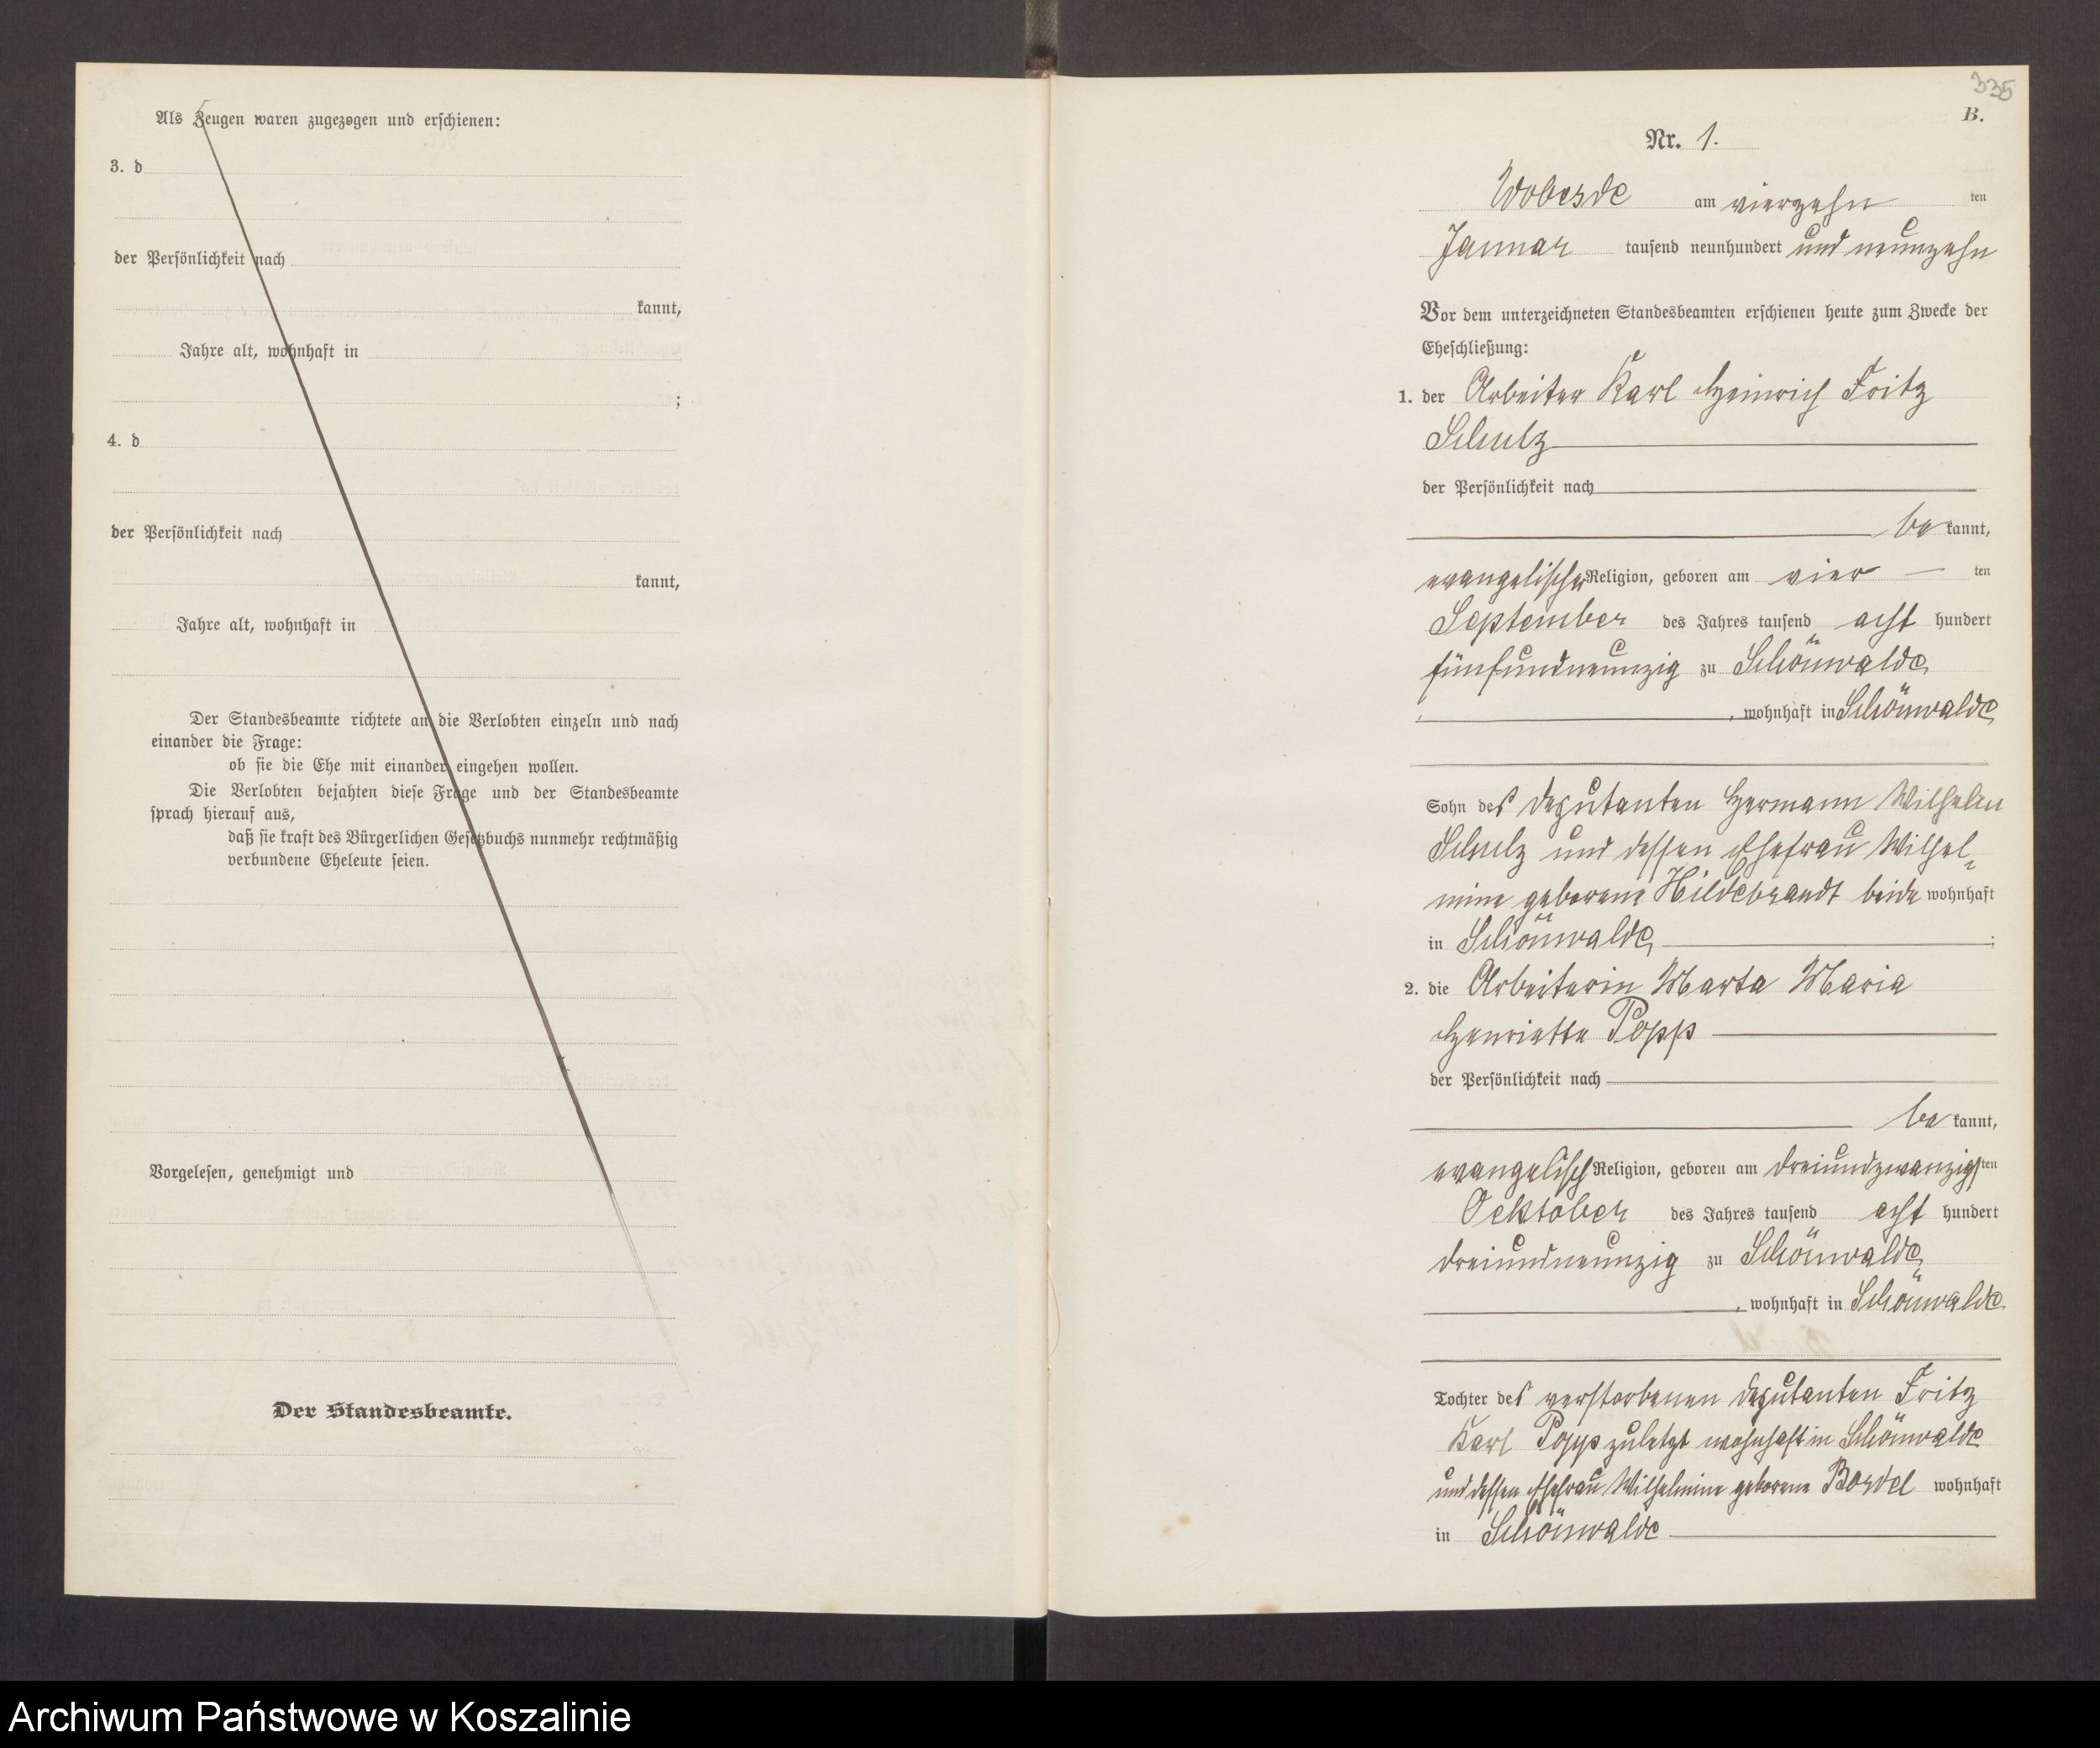 Als Zeugen waren zugezogen und erschienen:
3. d
der Persönlichkeit nach
kannt,
Jahre alt, wohnhaft in
;
4. d
der Persönlichkeit nach
kannt,
Jahre alt, wohnhaft in
Der Standesbeamte richtete an die Verlobten einzeln und nach
einander die Frage:
ob sie die Ehe mit einander eingehen wollen.
Die Verlobten bejahten diese Frage und der Standesbeamte
sprach hierauf aus,
daß sie kraft des Bürgerlichen Gesetzbuchs nunmehr rechtmäßig
verbundene Eheleute seien.
Vorgelesen, genehmigt und
Der Standesbeamte.
335
B.
Nr. 1.
Wobesde am vierzehn ten
Januar tausend neunhundert und neunzehn
Vor dem unterzeichneten Standesbeamten erschienen heute zum Zwecke der
Eheschließung:
1. der Arbeiter Karl Heinrich Fritz
Schulz
der Persönlichkeit nach
be kannt,
evangelischer Religion, geboren am vier ten
September des Jahres tausend acht hundert
fünfundneunzig zu Schönwalde
, wohnhaft in Schönwalde
Sohn des Deputanten Hermann Wilhelm
Schulz und dessen Ehefrau Wilhel-
mine geborene Hildebrandt beide wohnhaft
in Schönwalde ;
2. die Arbeiterin Marta Maria
Henriette Popp
der Persönlichkeit nach
be kannt,
evangelisch Religion, geboren am dreiundzwanzigsten
Ocktober des Jahres tausend acht hundert
dreiundneunzig zu Schönwalde
, wohnhaft in Schönwalde
Tochter des verstorbenen Deputanten Fritz
Karl Popp zuletzt wohnhaft in Schönwalde
und dessen Ehefrau Wilhelmine geborene Bardel wohnhaft
in Schönwalde
Archiwum Państwowe w Koszalinie